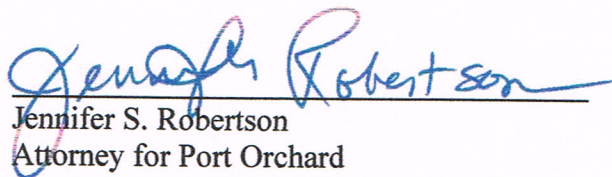 Jennifer Robertson
Jennifer S. Robertson
Attorney for Port Orchard